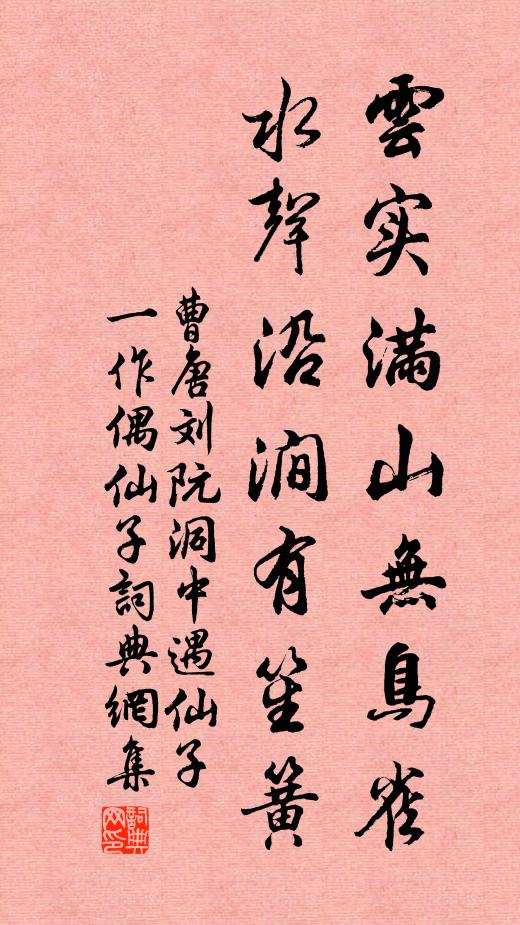 雲实满山無鳥雀
水聲沿澗有笙簧
曹唐刘阮洞中遇仙子
一作偶仙子詞典網集
詞典网印